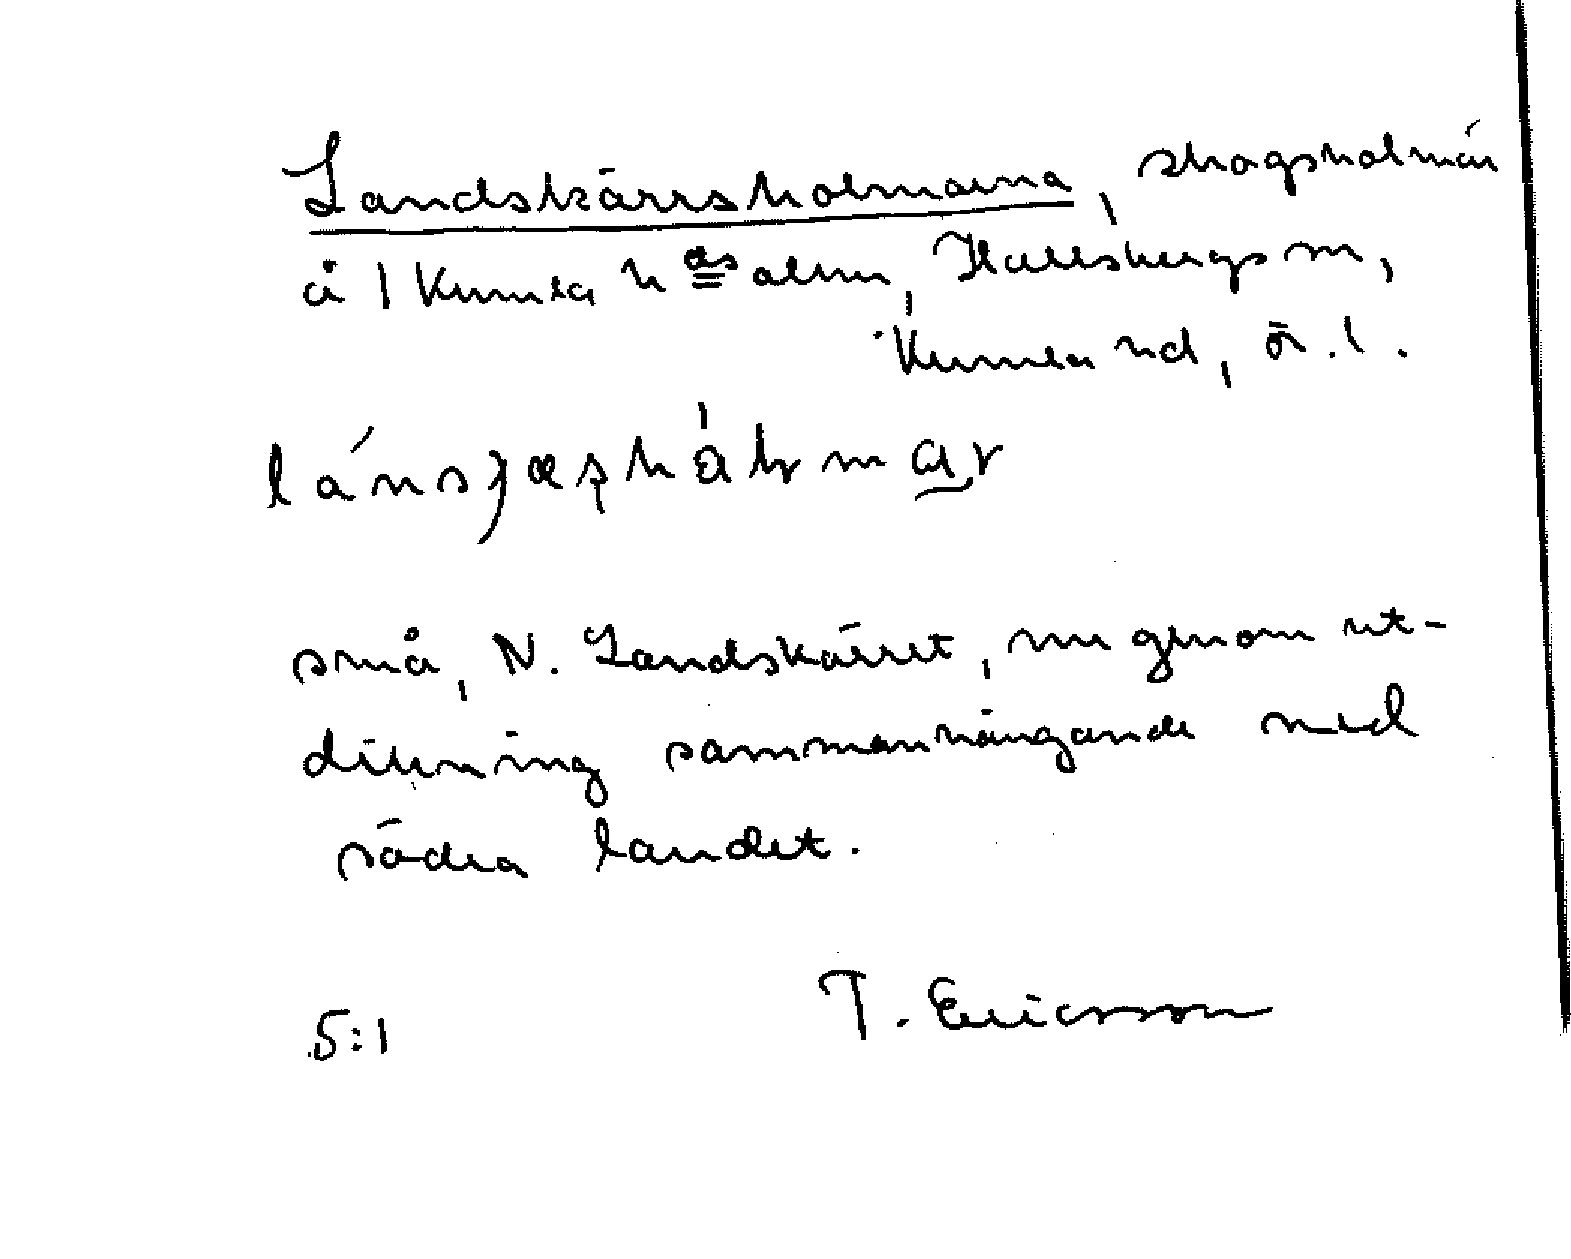 Landskärrsholmarna, skogsholmar
å Kumla hds alm, Hallsbergs sn,
Kumla hd, ö. l.
små, N. Landskärret, nu genom ut-
dikning sammanhängande med
södra landet.
5:1 T. Ericsson